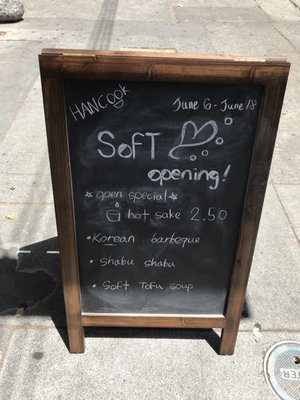 HANCook
June 6 - June 18
SofT
opening!
☆ open special ☆
hot sake 2.50
• Korean barbeque
• shabu shabu
• Soft Tofu soup